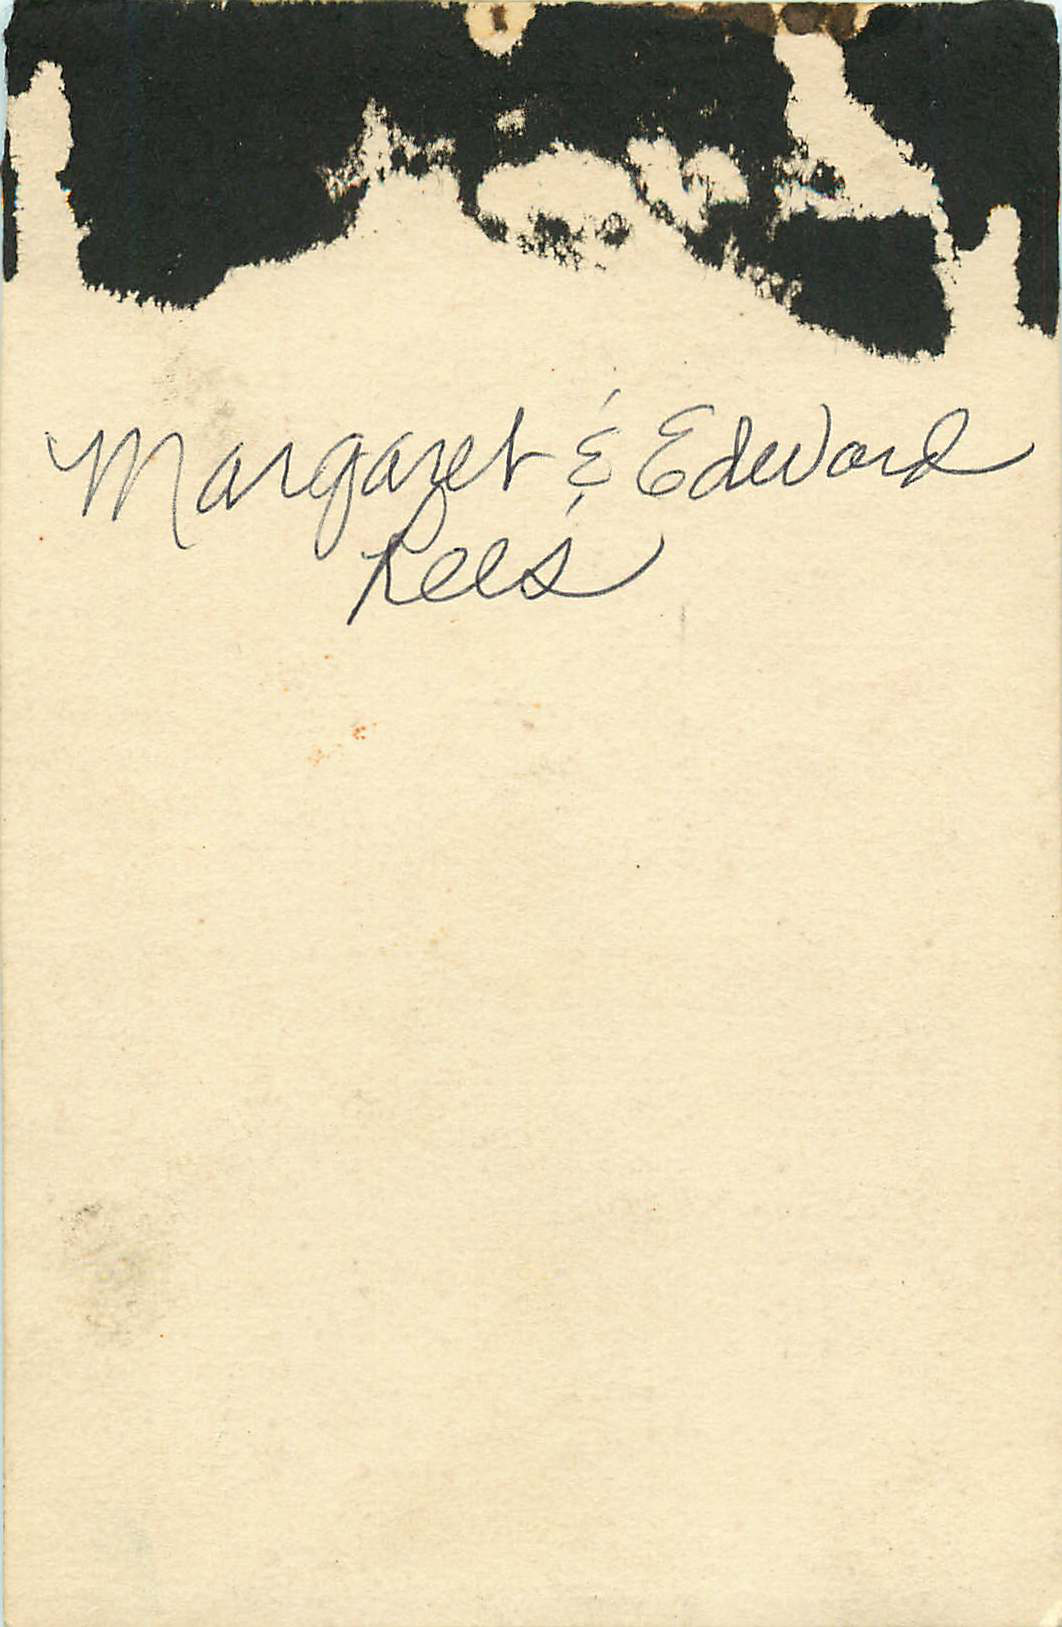 Margaret & Edward
Rees